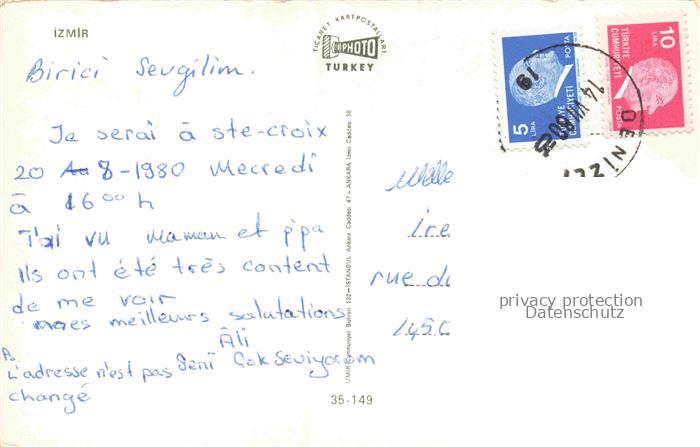 İZMİR
TİCARET KARTPOSTALLARI
PHOTO
TURKEY
Birici Sevgilim.
Je serai à ste-croix
20 8-1980 Mecredi
à 16°° h
J'ai vu Maman et p'pa
Ils ont été très content
de me voir
mes meilleurs salutations
Âli
Ps
L'adresse n'est pas Seni Çok Seviyorom
changé
35-149
İZMİR Cumhuriyet Bulvarı 132 - İSTANBUL Ankara Caddesi 47 - ANKARA İzmir Caddesi 38
5
LİRA
TÜRKİYE
CUMHURİYETİ
POSTA
10
LİRA
TÜRKİYE
CUMHURİYETİ
POSTA
19
14 VI
DENİZ
Melle
ire
rue du
1450
privacy protection
Datenschutz